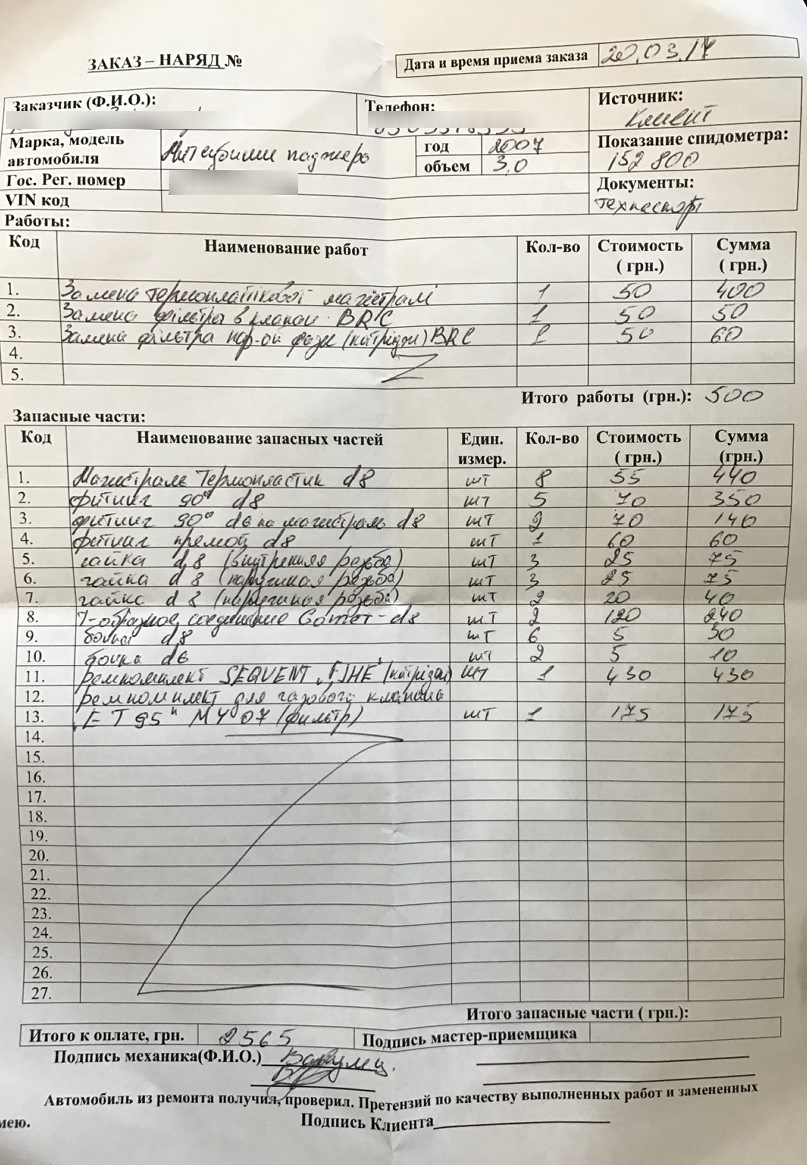 ЗАКАЗ – НАРЯД №
Дата и время приема заказа 20.03.17
Заказчик (Ф.И.О.):
Телефон:
Источник:
Клиент
Марка, модель автомобиля Митсубиши паджеро
год 2007
объем 3,0
Показание спидометра:
152 800
Гос. Рег. номер
VIN код
Документы:
техпаспорт
Работы:
Код Наименование работ Кол-во Стоимость ( грн.) Сумма ( грн.)
1. Замена термопластікової магістралі 1 50 400
2. Заміна фільтра в клапані BRC 1 50 50
3. Заміна фільтра фази (катрідж) BRC 1 50 60
4.
5.
Итого работы (грн.): 500
Запасные части:
Код Наименование запасных частей Един. измер. Кол-во Стоимость ( грн.) Сумма (грн.)
1. Магистраль Термопластик d8 шт 8 55 440
2. фитинг 90° d8 шт 5 70 350
3. фитинг 90° d6 на магистраль d8 шт 2 70 140
4. фитинг прямой d8 шт 1 60 60
5. гайка d8 (внутренняя резьба) шт 3 25 75
6. гайка d8 (наружная резьба) шт 3 25 75
7. гайка d8 (наружная резьба) шт 2 20 40
8. Т-образное соединение Gomet-d8 шт 2 120 240
9. бочка d8 шт 6 5 30
10. бочка d6 шт 2 5 10
11. ремкомплект SEQUENT „FJHE" (катрідж) шт 1 430 430
12. ремкомплект для газового клапана
13. „ET95" MY07 (фильтр) шт 1 175 175
14.
15.
16.
17.
18.
19.
20.
21.
22.
23.
24.
25.
26.
27.
Итого запасные части ( грн.):
Итого к оплате, грн. 2565 Подпись мастер-приемщика
Подпись механика(Ф.И.О.)
Автомобиль из ремонта получил, проверил. Претензий по качеству выполненных работ и замененных
мею. Подпись Клиента